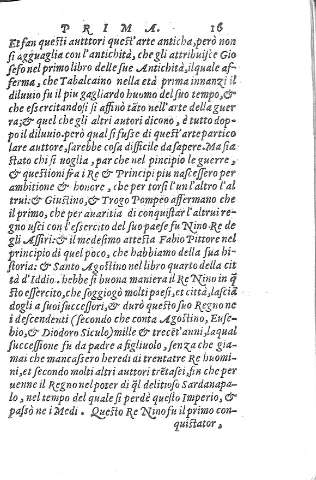 PRIMA. 16
Et fan questi auttori quest'arte anticha, però non
si agguaglia con l'antichità, che gli attribuisce Gio
sefo nel primo libro delle sue Antichità, il quale af-
ferma, che Tabalcaino nella età prima innanzi il
diluuio fu il piu gagliardo huomo del suo tempo, &
che essercitandosi si affinò tāto nell'arte della guer
ra; & quel che gli altri autori dicono, è tutto dop-
po il diluuio. però qual si fusse di quest'arte partico
lare auttore, sarebbe cosa difficile da sapere. Ma sia
stato chi si uoglia, par che nel pincipio le guerre,
& questioni fra i Re & Principi piu nascessero per
ambitione & honore, che per torsi l'un l'altro l'al
trui: & Giustino, & Trogo Pompeo affermano che
il primo, che per auaritia di conquistar l'altrui re-
gno uscì con l'essercito del suo paese fu Nino Re de
gli Assiri: & il medesimo attesta Fabio Pittore nel
principio di quel poco, che habbiamo della sua hi-
storia: & Santo Agostino nel libro quarto della cit
tà d'Iddio. hebbe si buona maniera il Re Nino in q̄
sto essercito, che soggiogò molti paesi, et città, lasciā
dogli a suoi successori, & durò questo suo Regno ne
i descendenti (secondo che conta Agostino, Euse-
bio, & Diodoro Siculo) mille & trecēt'anni, la qual
successione fu da padre a figliuolo, senza che gia-
mai che mancassero heredi ai trentatre Re huomi-
ni, et secondo molti altri auttori trētasei, fin che per
uenne il Regno nel poter di q̄l delitioso Sardanapa-
lo, nel tempo del quale si perdè questo Imperio, &
passò ne i Medi. Questo Re Nino fu il primo con-
quistator,